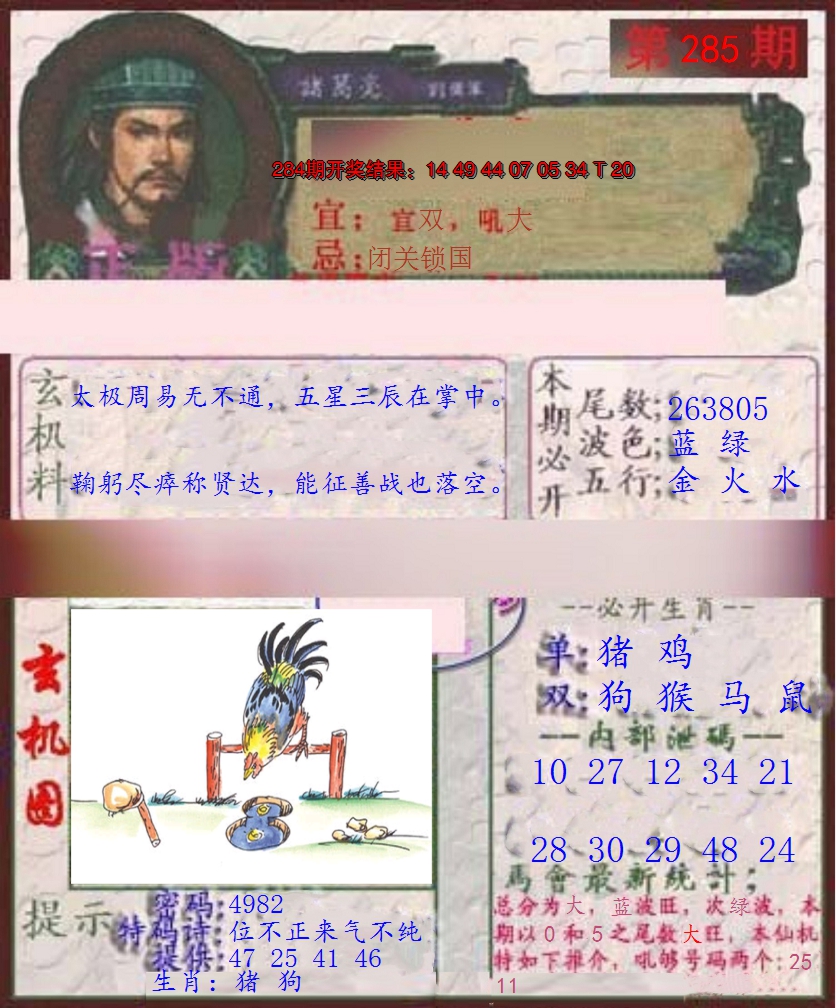 第 285 期
諸葛亮
284期开奖结果：14 49 44 07 05 34 T 20
宜；宜双，吼大
忌；闭关锁国
正版
玄机料
太极周易无不通，五星三辰在掌中。
鞠躬尽瘁称贤达，能征善战也落空。
本期必开
尾数;263805
波色;蓝 绿
五行;金 火 水
玄机图
--必开生肖--
单:猪 鸡
双:狗 猴 马 鼠
--内部泄碼--
10 27 12 34 21
28 30 29 48 24
馬會最新统計;
总分为大，蓝波旺，次绿波，本
期以0和5之尾数大旺，本仙机
特如下推介，吼够号码两个:25
11
提示
密码:4982
特码诗:位不正来气不纯
提供:47 25 41 46
生肖：猪 狗